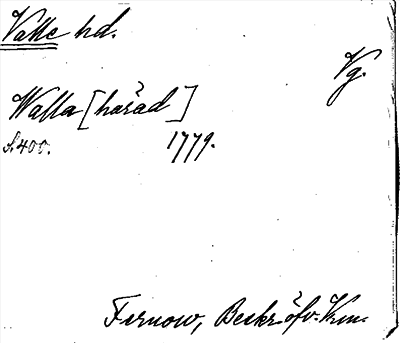 Valle hd.
Vg.
Walla [härad]
s. 400. 1779.
Fernow, Beskr. öfv. Vrm.